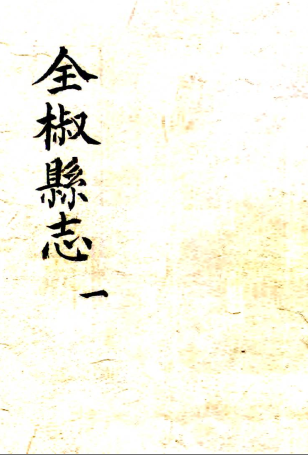 全椒縣志
一